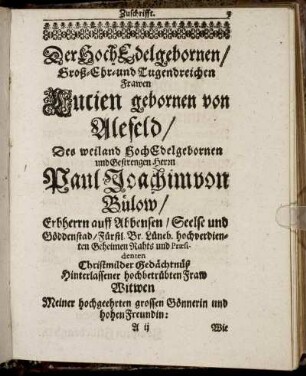 Zuschrifft.
Der HochEdelgebornen/
Groß-Ehr-und Tugendreichen
Frawen
Lucien gebornen von
Alefeld/
Des weiland HochEdelgebornen
und Gestrengen Herrn
Paul Joachim von
Bülow/
Erbherrn auff Abbensen/ Seelse und
Göddenstad/ Fürstl. Br. Lüneb. hochverdien-
ten Geheimen Rahts und Præsi-
denten
Christmilder Gedächtnüß
Hinterlassener hochbetrübten Fraw
Witwen
Meiner hochgeehrten grossen Gönnerin und
hohen Freundin:
A ij Wie